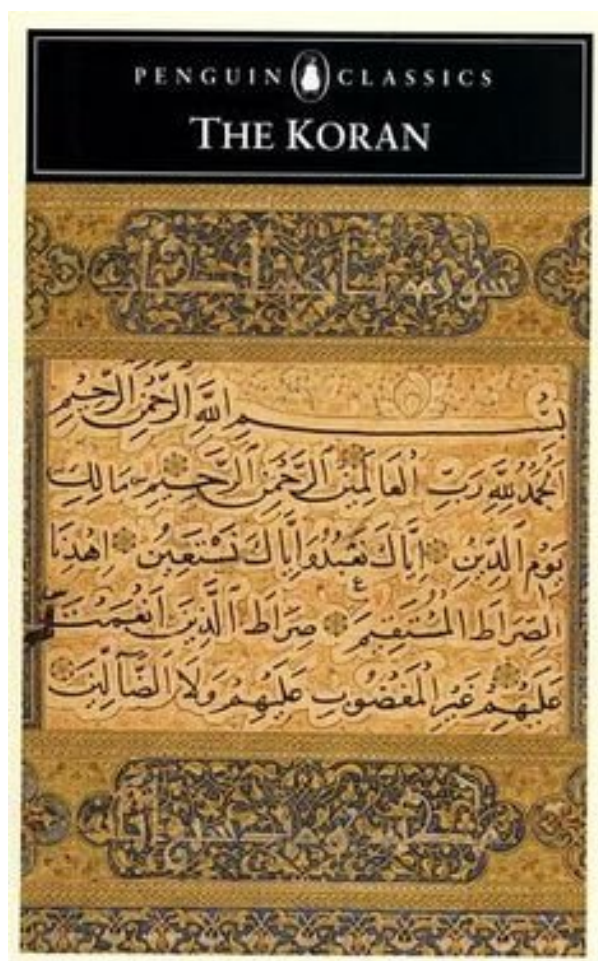 PENGUIN CLASSICS
THE KORAN
بِسْمِ اللَّهِ الرَّحْمَنِ الرَّحِيمِ
الْحَمْدُ لِلَّهِ رَبِّ الْعَالَمِينَ الرَّحْمَنِ الرَّحِيمِ مَالِكِ
يَوْمِ الدِّينِ إِيَّاكَ نَعْبُدُ وَإِيَّاكَ نَسْتَعِينُ اِهْدِنَا
الصِّرَاطَ الْمُسْتَقِيمَ صِرَاطَ الَّذِينَ أَنْعَمْتَ
عَلَيْهِمْ غَيْرِ الْمَغْضُوبِ عَلَيْهِمْ وَلَا الضَّآلِّينَ